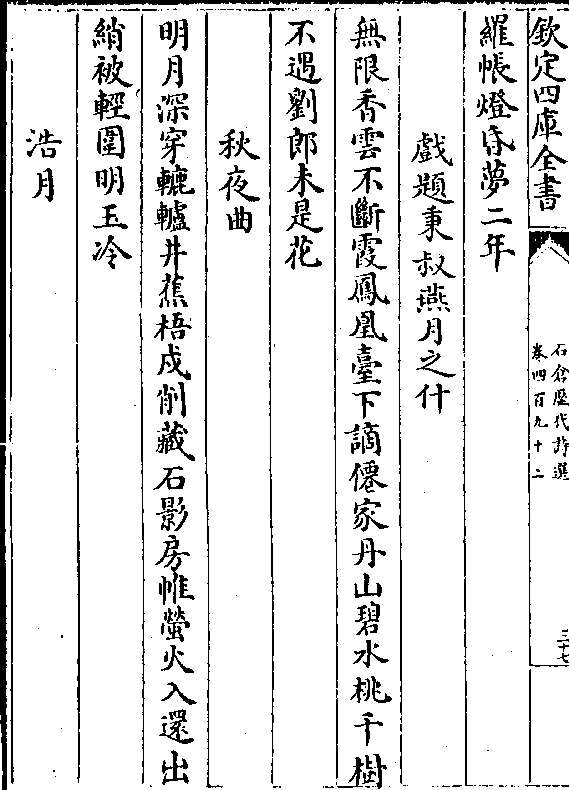 欽定四庫全書
石倉歴代詩選
卷四百九十二
三十七
羅帳燈昏夢二年
戲題秉叔燕月之什
無限香雲不斷霞鳳凰臺下謫僊家丹山碧水桃千樹
不遇劉郎未是花
秋夜曲
明月深穿轆轤井蕉梧戍削藏石影房帷螢火入還出
綃被輕圍明玉冷
浩月